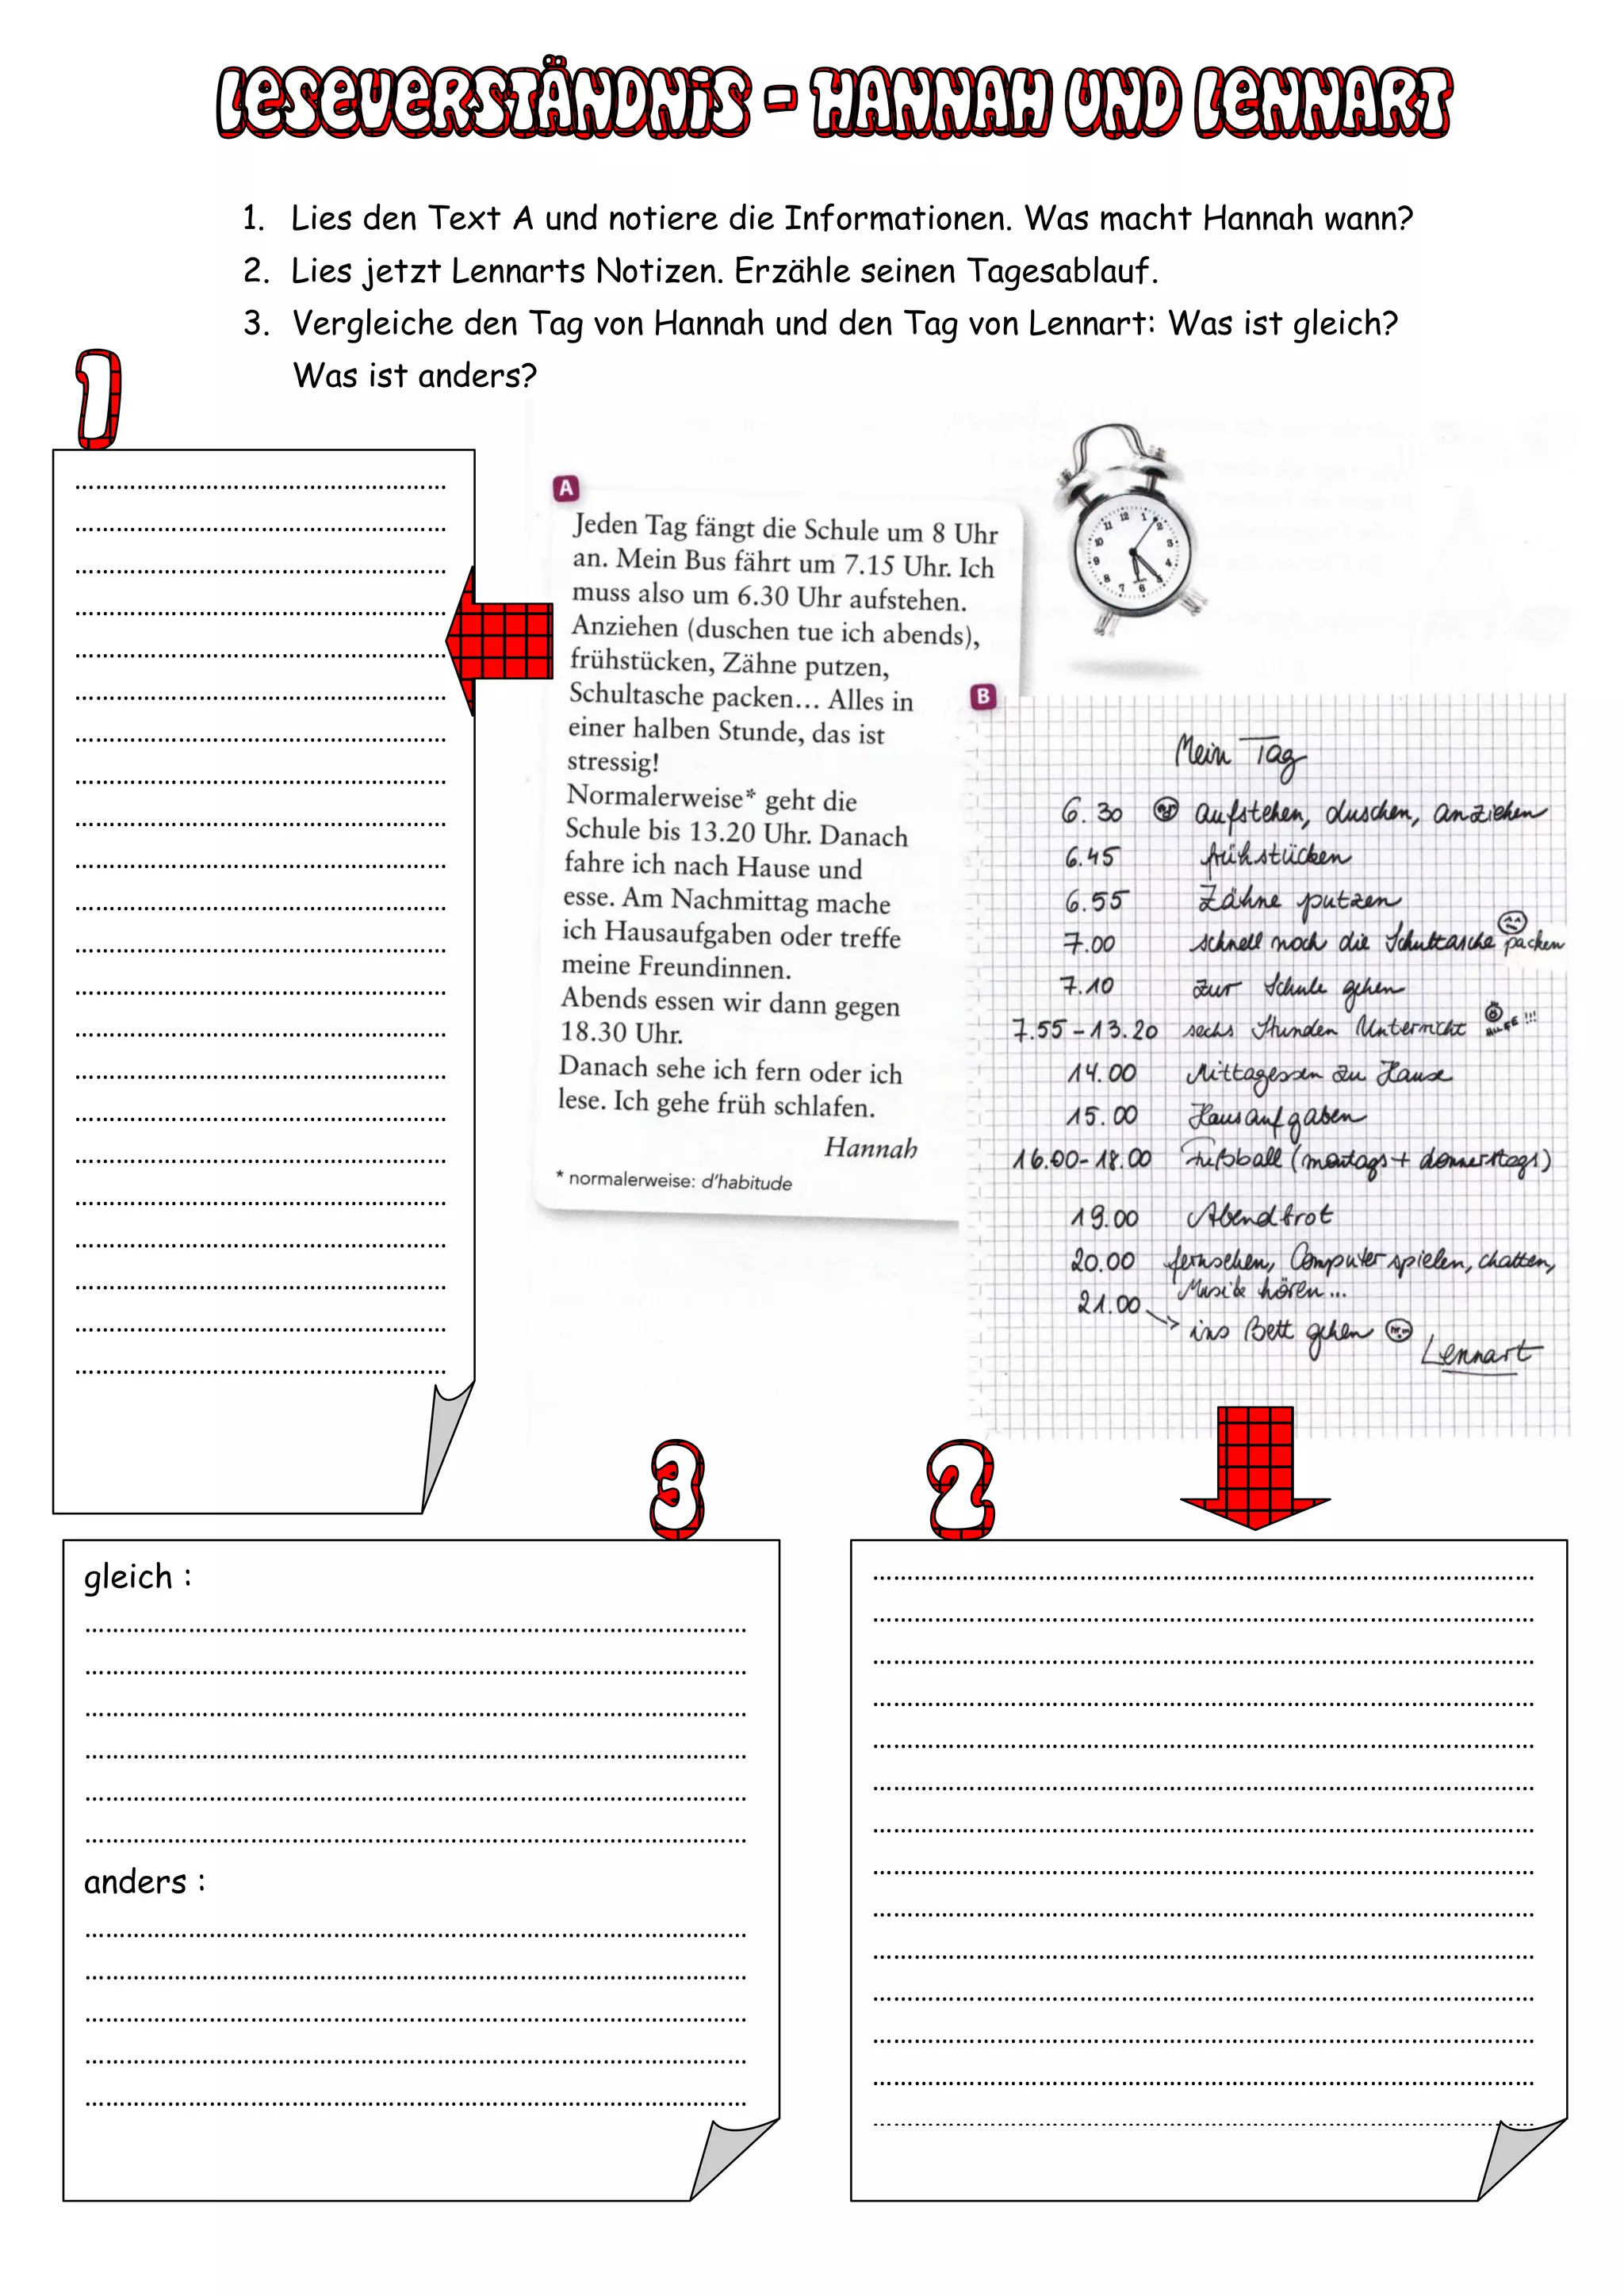 Leseverständnis - Hannah und Lennart
1. Lies den Text A und notiere die Informationen. Was macht Hannah wann?
2. Lies jetzt Lennarts Notizen. Erzähle seinen Tagesablauf.
3. Vergleiche den Tag von Hannah und den Tag von Lennart: Was ist gleich?
Was ist anders?
1
A
Jeden Tag fängt die Schule um 8 Uhr
an. Mein Bus fährt um 7.15 Uhr. Ich
muss also um 6.30 Uhr aufstehen.
Anziehen (duschen tue ich abends),
frühstücken, Zähne putzen,
Schultasche packen... Alles in
einer halben Stunde, das ist
stressig!
Normalerweise* geht die
Schule bis 13.20 Uhr. Danach
fahre ich nach Hause und
esse. Am Nachmittag mache
ich Hausaufgaben oder treffe
meine Freundinnen.
Abends essen wir dann gegen
18.30 Uhr.
Danach sehe ich fern oder ich
lese. Ich gehe früh schlafen.
Hannah
* normalerweise: d'habitude
B
Mein Tag
6.30 aufstehen, duschen, anziehen
6.45 frühstücken
6.55 Zähne putzen
7.00 schnell noch die Schultasche packen
7.10 zur Schule gehen
7.55-13.20 sechs Stunden Unterricht HILFE!!!
14.00 Mittagessen zu Hause
15.00 Hausaufgaben
16.00-18.00 Fußball (montags + donnerstags)
19.00 Abendbrot
20.00 fernsehen, Computer spielen, chatten,
Musik hören...
21.00 ins Bett gehen
Lennart
3
gleich :
anders :
2